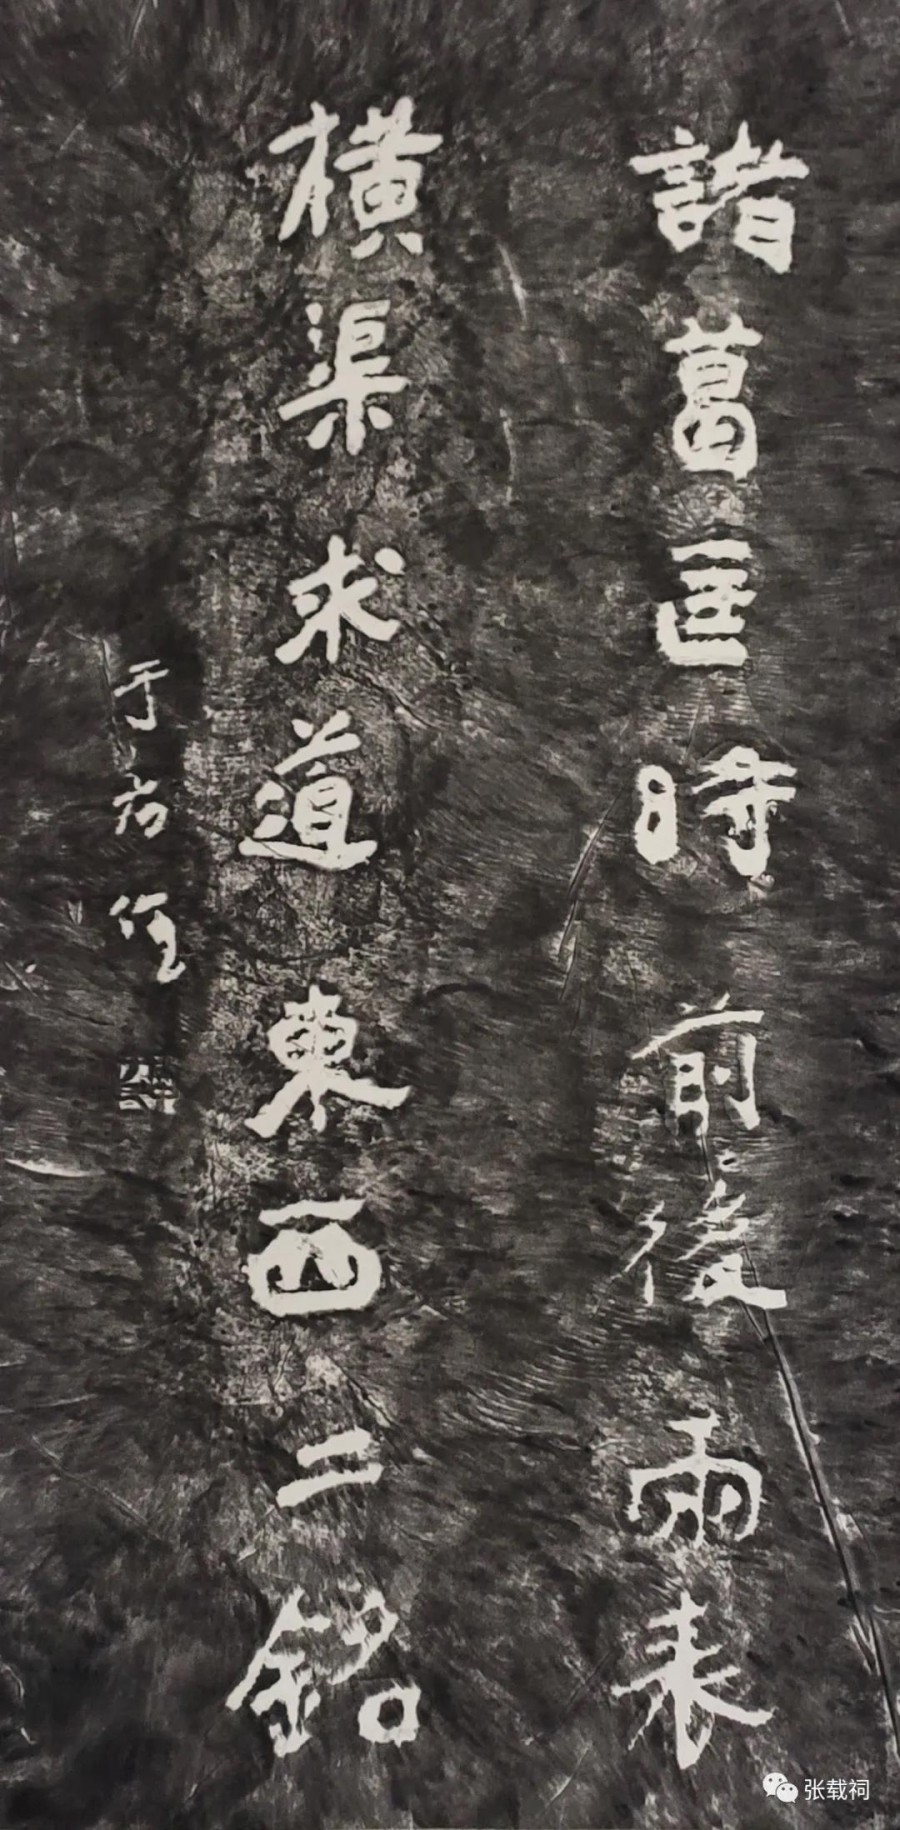 諸葛匡時前後兩表
橫渠求道東西二銘
于右任
张载祠